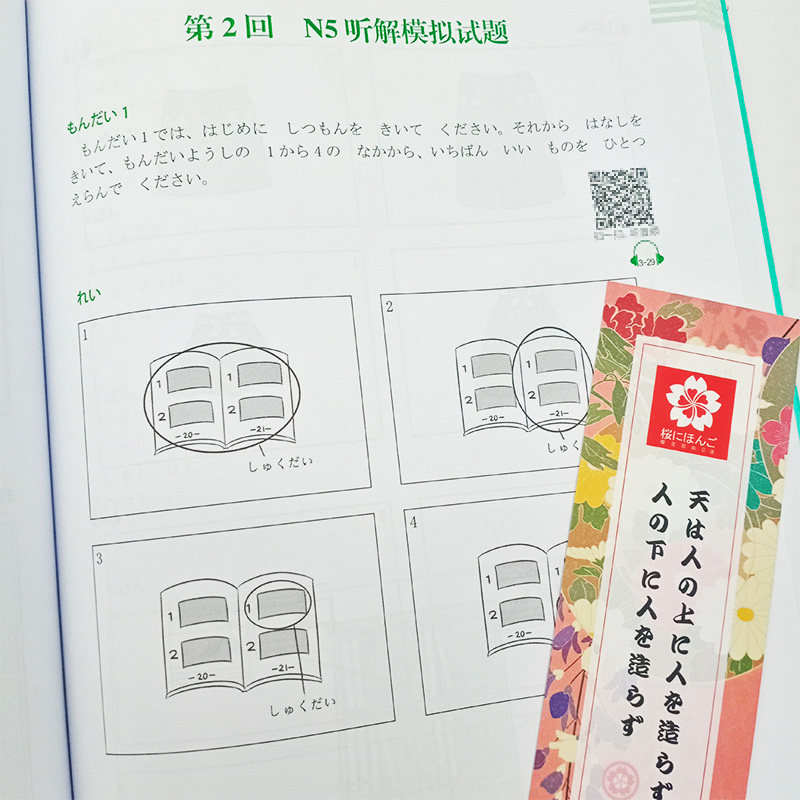 第2回 N5 听解模拟试题
もんだい1
もんだい1では、はじめに しつもんを きいて ください。それから はなしを
きいて、もんだいようしの 1から4の なかから、いちばん いい ものを ひとつ
えらんで ください。
3-29
れい
1
1
2
1
2
-20-
-21-
しゅくだい
2
1
2
1
2
-20-
-21-
しゅく
3
1
2
1
2
-20-
-21-
しゅくだい
4
1
2
-20-
桜にほんご
天は人の上に人を造らず
人の下に人を造らず